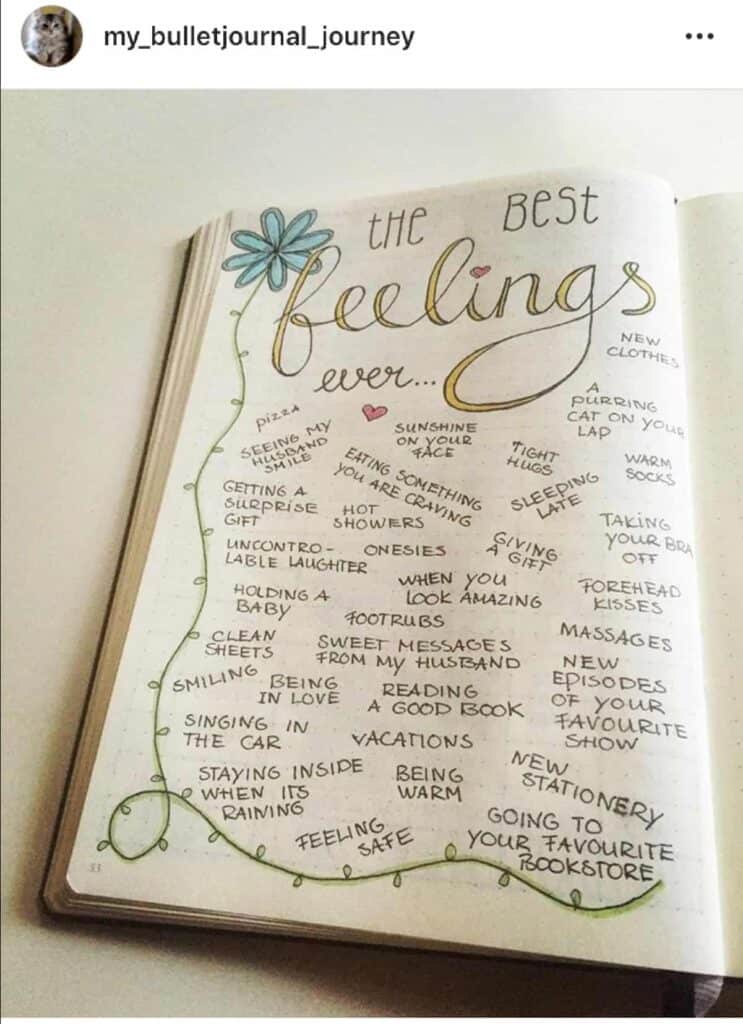 my_bulletjournal_journey
THE BEST
feelings
ever...
NEW
CLOTHES
A
PURRING
CAT ON YOUR
LAP
PIZZA
SEEING MY
HUSBAND
SMILE
SUNSHINE
ON YOUR
FACE
TIGHT
HUGS
WARM
SOCKS
EATING SOMETHING
YOU ARE CRAVING
SLEEPING
LATE
GETTING A
SURPRISE
GIFT
HOT
SHOWERS
TAKING
YOUR BRA
OFF
UNCONTRO-
LABLE LAUGHTER
ONESIES
GIVING
A GIFT
HOLDING A
BABY
WHEN YOU
LOOK AMAZING
FOREHEAD
KISSES
FOOTRUBS
CLEAN
SHEETS
SWEET MESSAGES
FROM MY HUSBAND
MASSAGES
SMILING
BEING
IN LOVE
READING
A GOOD BOOK
NEW
EPISODES
OF YOUR
FAVOURITE
SHOW
SINGING IN
THE CAR
VACATIONS
STAYING INSIDE
WHEN ITS
RAINING
BEING
WARM
NEW
STATIONERY
FEELING
SAFE
GOING TO
YOUR FAVOURITE
BOOKSTORE
53